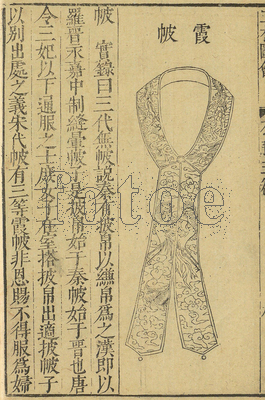 霞帔
帔　實錄曰三代無帔說秦有披帛以縑帛為之漢即以
羅晉永嘉中制絳暈帔子是披帛始于秦帔始于晉也唐
令三妃以下通服之士庶女子在室搭披帛出適披帔子
以別出處之義宋代帔有三等霞帔非恩賜不得服為婦
fotoe